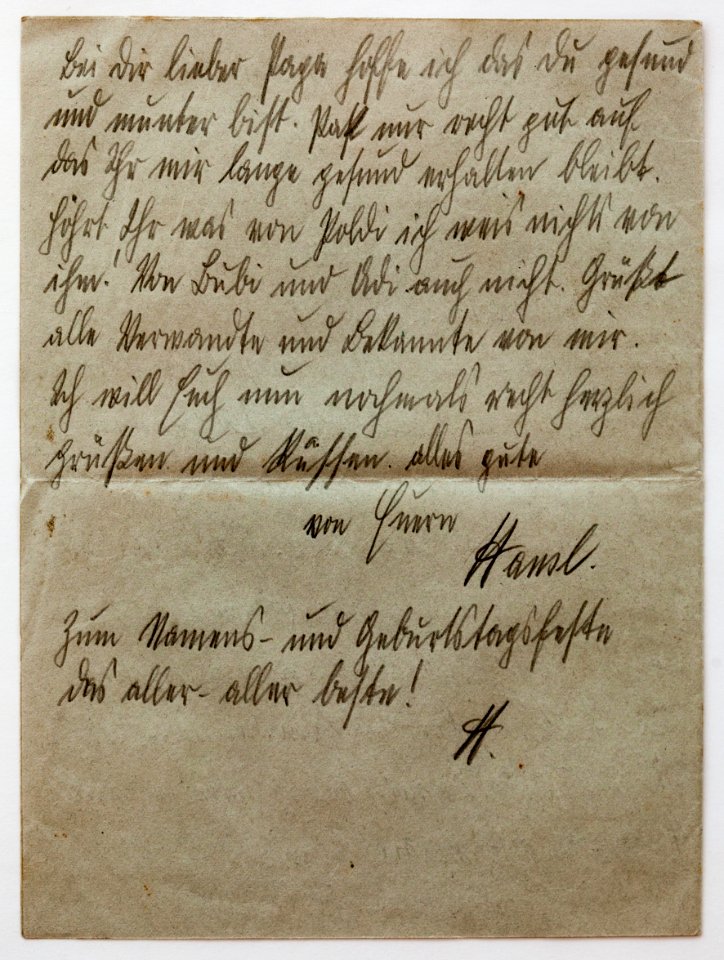 Bei Dir lieber Papa hoffe ich das du gesund
und munter bist. Paßt nur recht gut auf
das Ihr mir lange gesund erhalten bleibt.
Höhrt Ihr was von Poldi ich weis nichts von
ihm! Von Bubi und Adi auch nicht. Grüßt
alle Verwandte und Bekannte von mir.
Ich will Euch nun nochmals recht herzlich
grüßen und Küssen. alles gute
von Euern
Hansl.
Zum Namens- und Geburtstagsfeste
das aller- aller beste!
H.